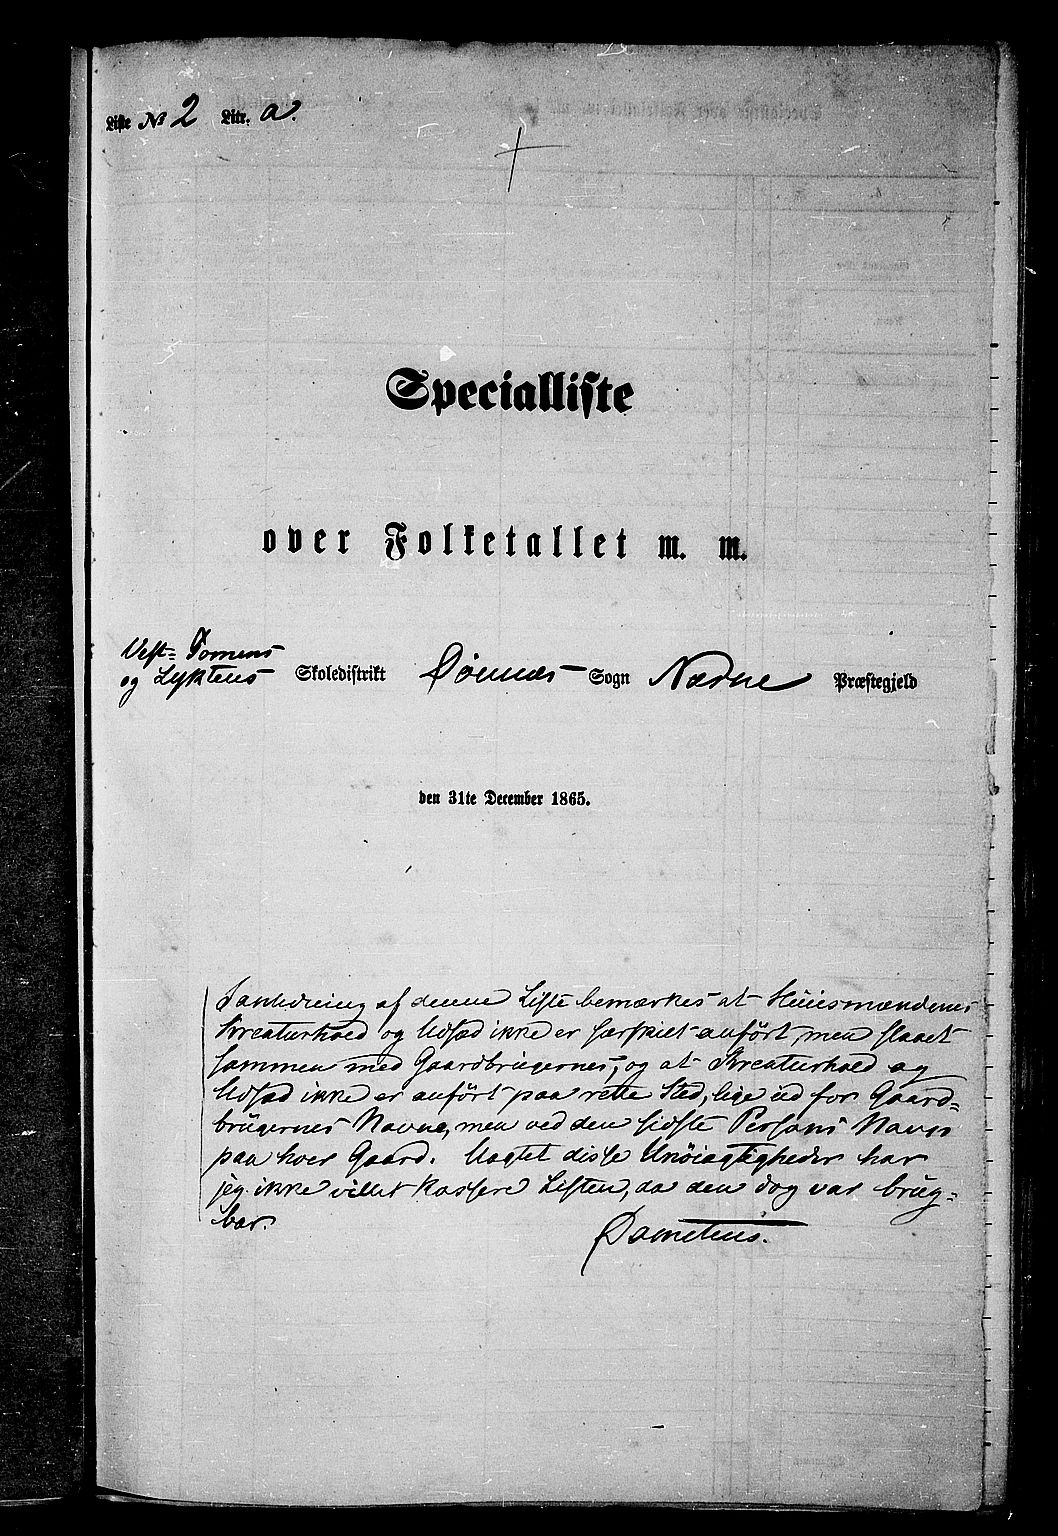 Liste № 2 Litr. a.
Specialliste
over Folketallet m. m.
Vest-Tomens
og Lyktens Skoledistrikt Dønnæs Sogn Næsne Præstegjeld
den 31te December 1865.
I anledning af denne Liste bemærkes at Huusmændenes
Kreaturhold og Udsæd ikke er særskilt anført, men slaaet
sammen med Gaardbrugernes, og at Kreaturhold og
Udsæd ikke er anført paa rette Sted, lige ud for Gaard-
brugernes Navne, men ved den sidste Persons Navn
paa hver Gaard. Uagtet disse Unøiagtigheder har
jeg ikke villet kassere Listen, da den dog var brug-
bar.